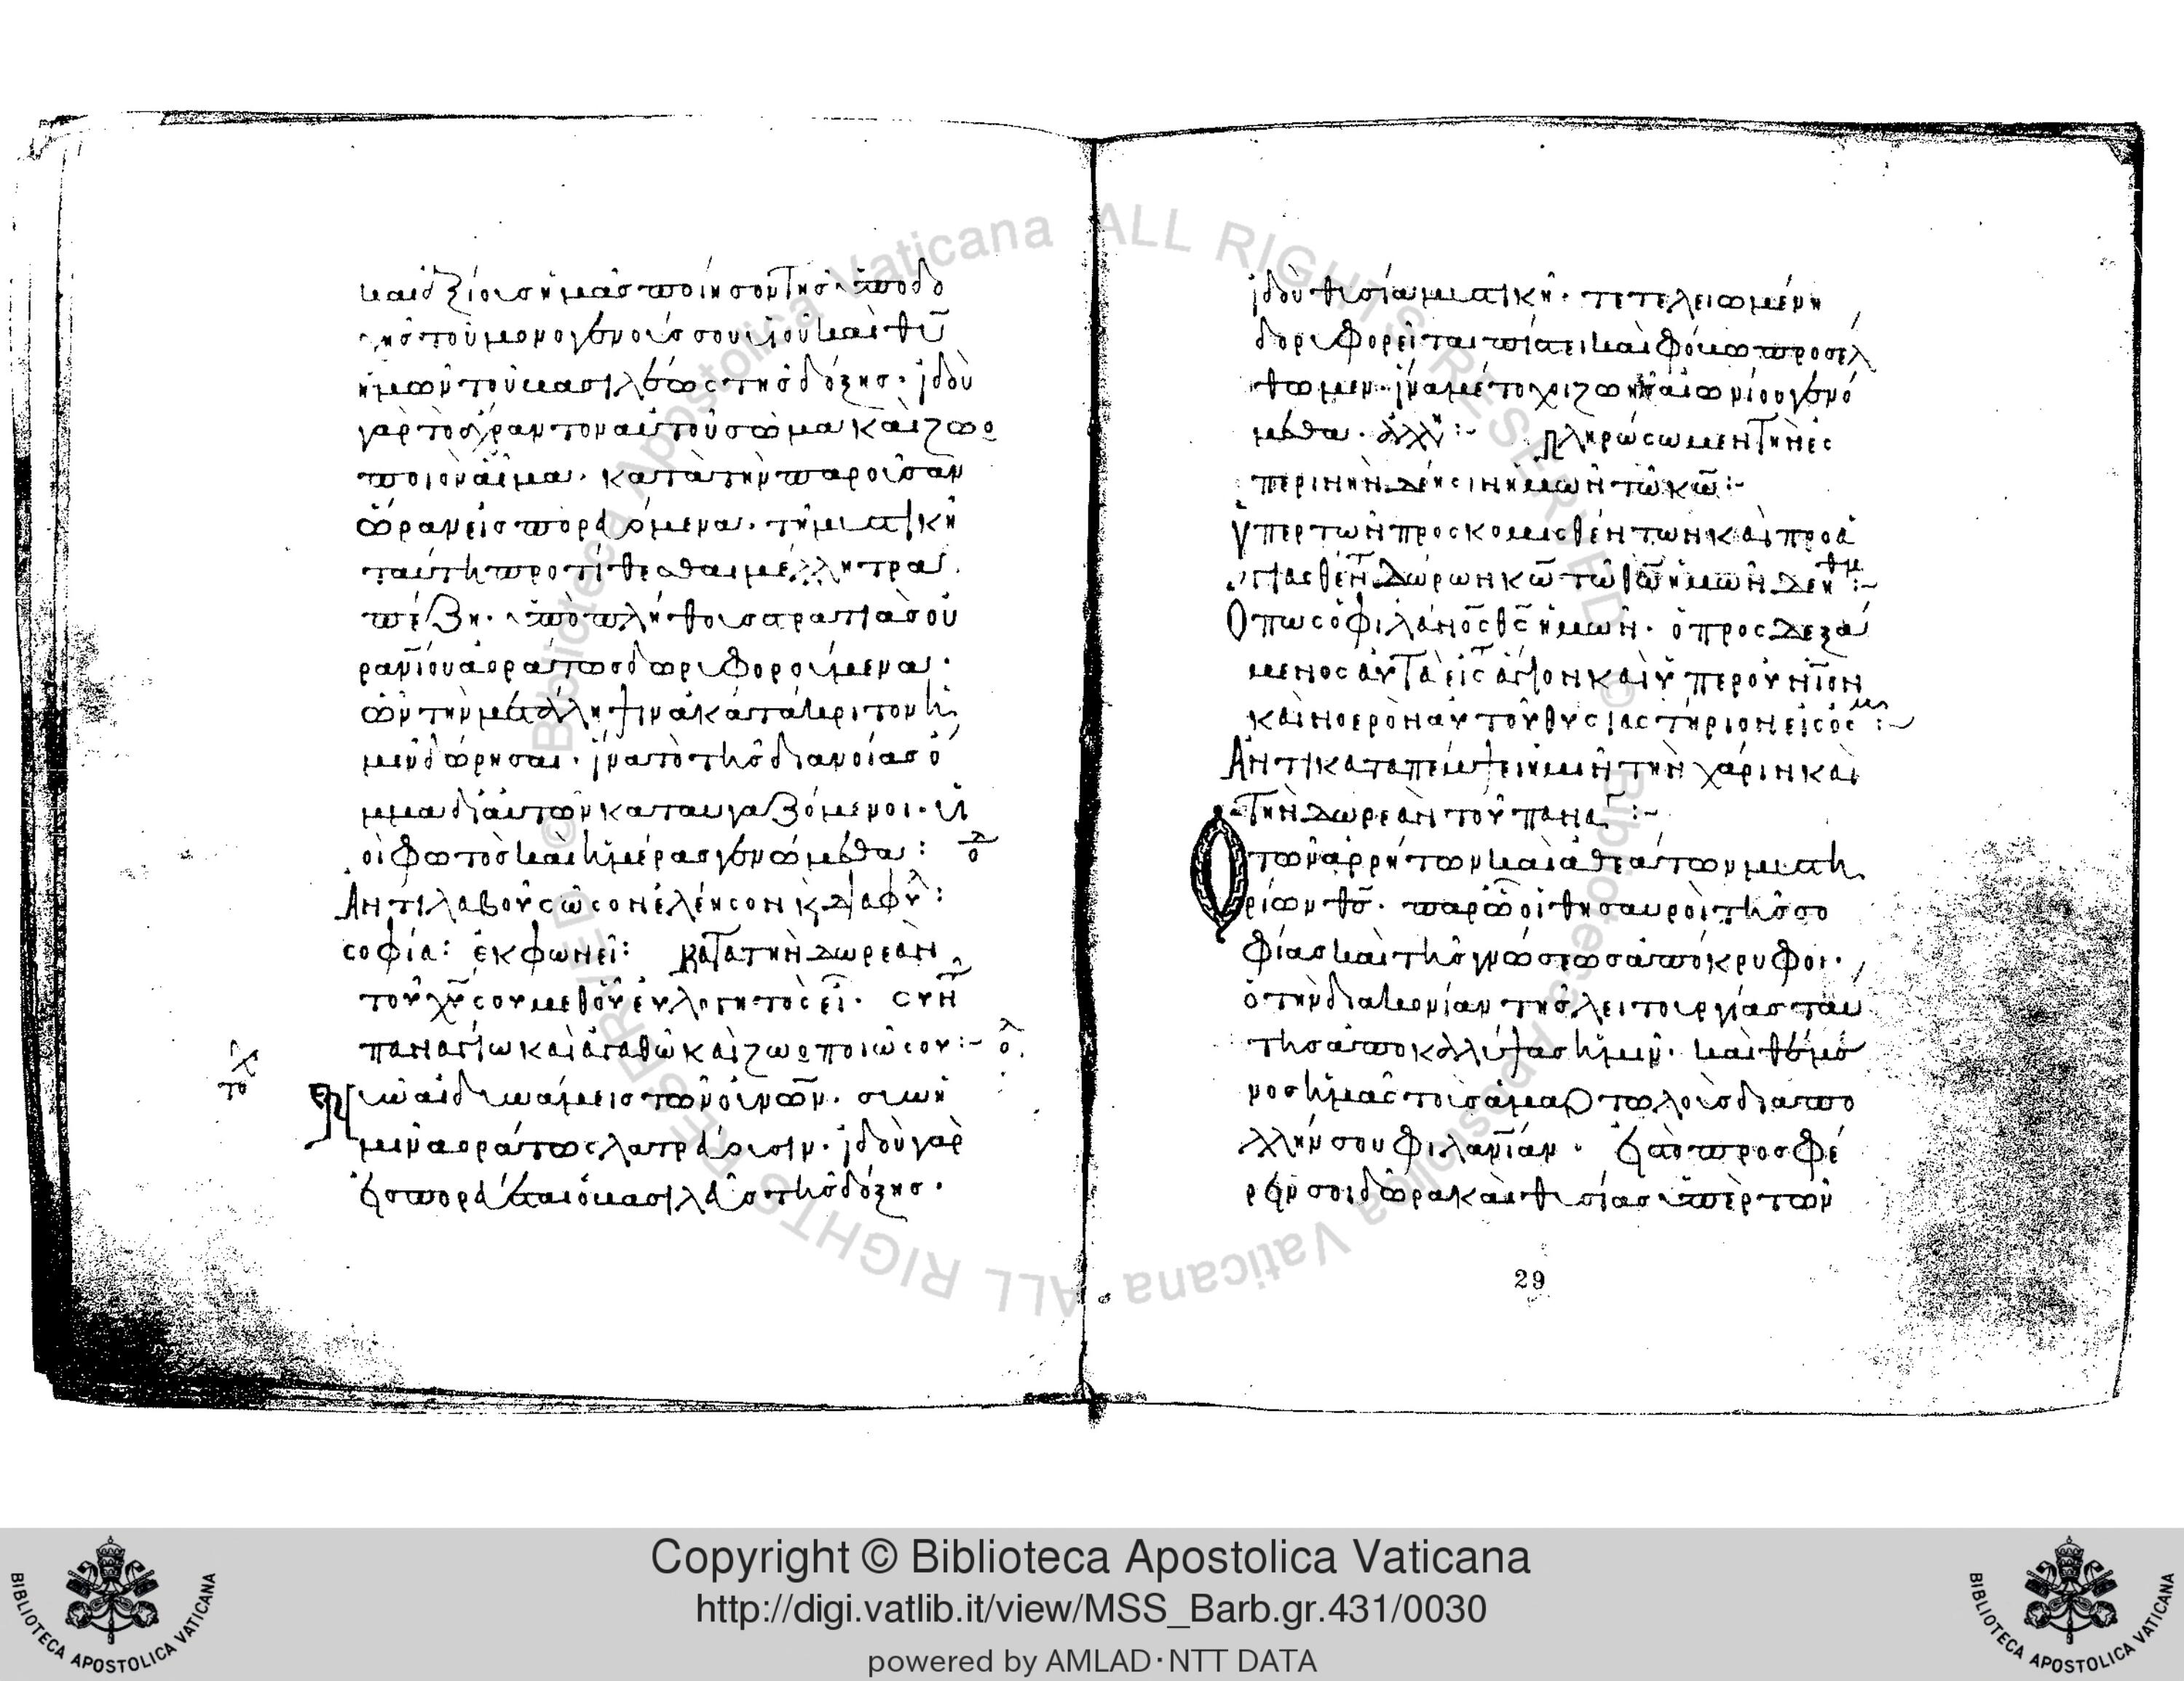 καὶ ἀξίους ἡμᾶς ποίησον τῆς ὑποδο
χῆς τοῦ μονογενοῦς σου υἱοῦ καὶ θῦ
ἡμῶν τοῦ βασιλέως τῆς δόξης· ἰδοὺ
γὰρ τὸ ἄχραντον αὐτοῦ σῶμα καὶ ζωο
ποιὸν αἷμα· κατὰ τὴν παροῦσαν
ὥραν εἰσπορευόμενα· τῇ μυστικῇ
ταύτῃ προτίθεσθαι μέλλει τρα
πέζῃ· ὑπὸ πλήθους στρατιᾶς οὐ
ρανίου ἀοράτως δορυφορούμενα·
ὧν τὴν μετάληψιν ἀκατάκριτον ἡ
μῖν δώρησαι· ἵνα τὸ τῆς διανοίας ὄ
μμα δι' αὐτῶν καταυγαζόμενοι· υἱ
οὶ φωτὸς καὶ ἡμέρας γενώμεθα:
Ἀντιλαβοῦ σῶσον ἐλέησον κ διαφύλ:
σοφία: ἐκφωνεῖ: Κατὰ τὴν δωρεὰν
τοῦ χῦ σου μεθ' οὗ εὐλογητὸς εἶ· σὺν
παναγίω καὶ ἀγαθῶ καὶ ζωοποιῶ σου:
Νῦν αἱ δυνάμεις τῶν οὐνῶν· σὺν ἡ
μῖν ἀοράτως λατρεύουσιν· ἰδοὺ γὰρ
εἰσπορεύεται ὁ βασιλεὺς τῆς δόξης·
ἰδοὺ θυσία μυστικὴ· τετελειωμένη
δορυφορεῖται πίστει καὶ φόβω προσέλ
θωμεν· ἵνα μέτοχοι ζωῆς αἰωνίου γενό
μεθα· ἀλλ: Πληρώσωμεν τὴν ἑσ
περινὴν δέησιν ἡμῶν τῶ κῶ:
Ὑπὲρ τῶν προσκομισθέντων καὶ προα
γιασθέντ δώρων κῦ τῶ θῶ ἡμῶν δεηθμ:
Ὅπως ὁ φιλάνος θς ἡμῶν· ὁ προσδεξά
μενος αὐτὰ εἰς ἅγιον καὶ ὑπερουνιον
καὶ νοερὸν αὐτοῦ θυσιαστήριον εἰς ὀσμ:
Ἀντικαταπέμψει ἡμῖν τὴν χάριν καὶ
τὴν δωρεὰν τοῦ παναγ:
Ὁ τῶν ἀρρήτων καὶ ἀθεάτων μυστη
ρίων θς· παρ' ὧ οἱ θησαυροὶ τῆς σο
φίας καὶ τῆς γνώσεως ἀπόκρυφοι·
ὁ τὴν διακονίαν τῆς λειτουργίας ταύ
της ἀποκαλύψας ἡμῖν· καὶ θέμε
νος ἡμᾶς τοὺς ἁμαρτωλοὺς διὰ πο
λλήν σου φιλανίαν· εἰς τὸ προσφέ
ρειν σοι δῶρα καὶ θυσίας ὑπὲρ τῶν
29
Copyright © Biblioteca Apostolica Vaticana
http://digi.vatlib.it/view/MSS_Barb.gr.431/0030
powered by AMLAD·NTT DATA
BIBLIOTECA APOSTOLICA VATICANA
BIBLIOTECA APOSTOLICA VATICANA